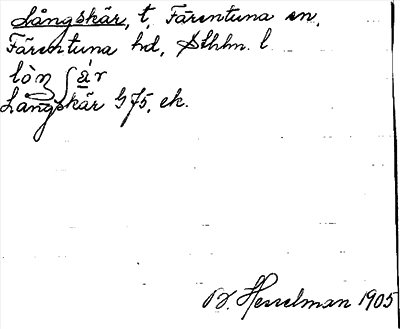 Långskär, t, Färentuna sn,
Färentuna hd, Sthlm. l
Långskär G75, ek.
B. Hesselman 1905